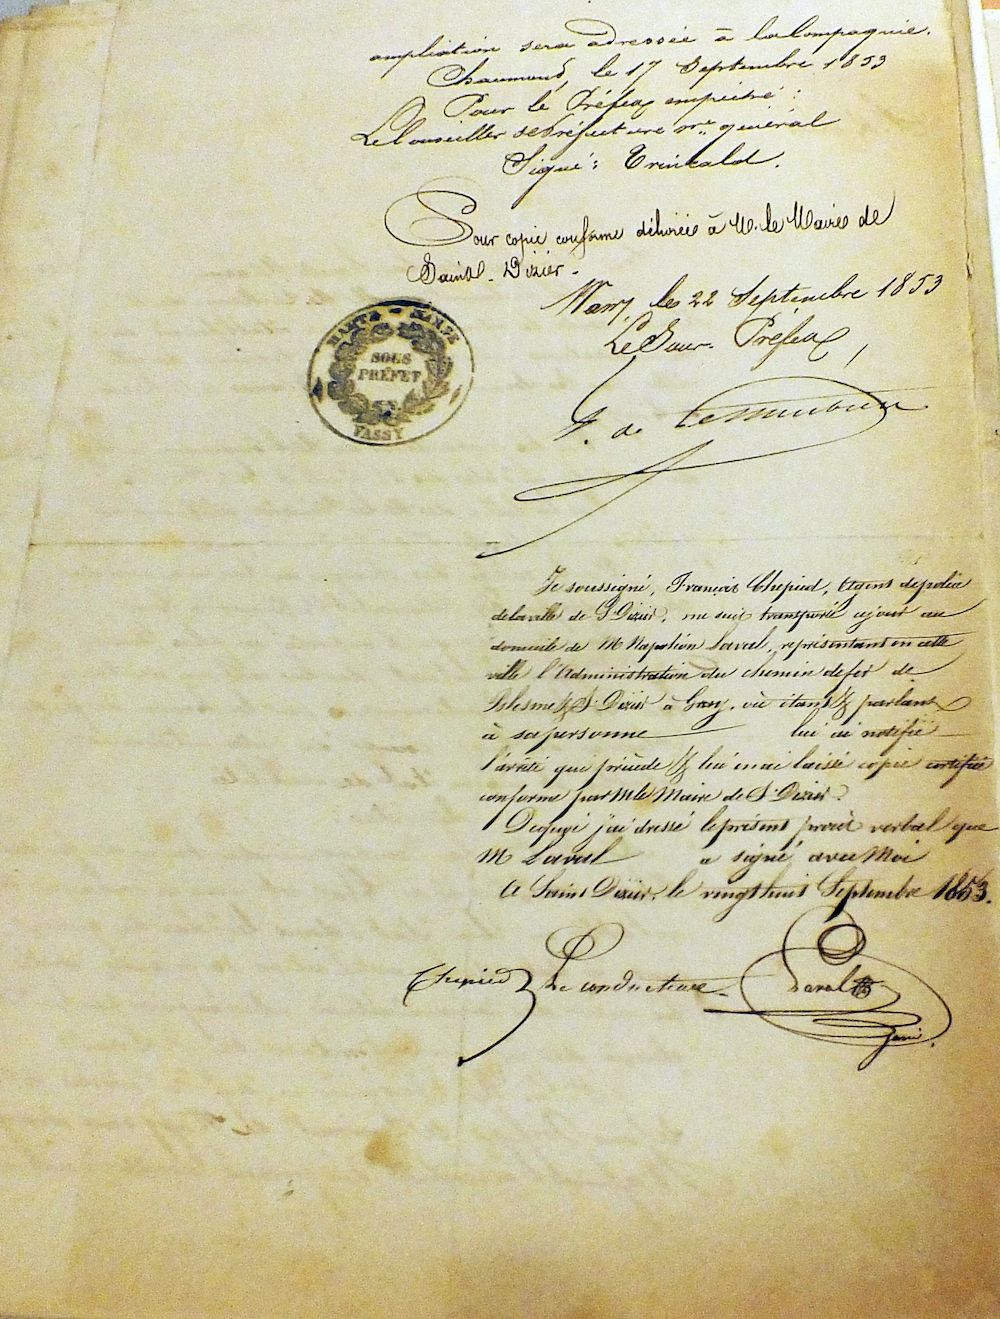 ampliation sera adressée à la Compagnie.
Chaumont, le 17 Septembre 1853
Pour le Préfet empêché :
Le Conseiller de Préfecture Sre général
Signé :
Pour copie conforme délivrée à M. le Maire de
Saint-Dizier.
Wassy, le 22 Septembre 1853
Le Sous-Préfet,
HAUTE-MARNE
SOUS
PRÉFET
VASSY
Je soussigné, François Thepied, Agent de police
de la ville de St Dizier, me suis transporté ce jour au
domicile de M Napoléon Laval, représentant en cette
ville l'Administration du chemin de fer de
Blesme & St Dizier à Gray, où étant & parlant
à sa personne lui ai notifié
l'arrêté qui précède & lui en ai laissé copie certifiée
conforme par M le Maire de St Dizier.
De quoi j'ai dressé le présent procès verbal que
M Laval a signé avec Moi
A Saint Dizier, le vingt huit Septembre 1853.
Thepied Le conducteur Laval